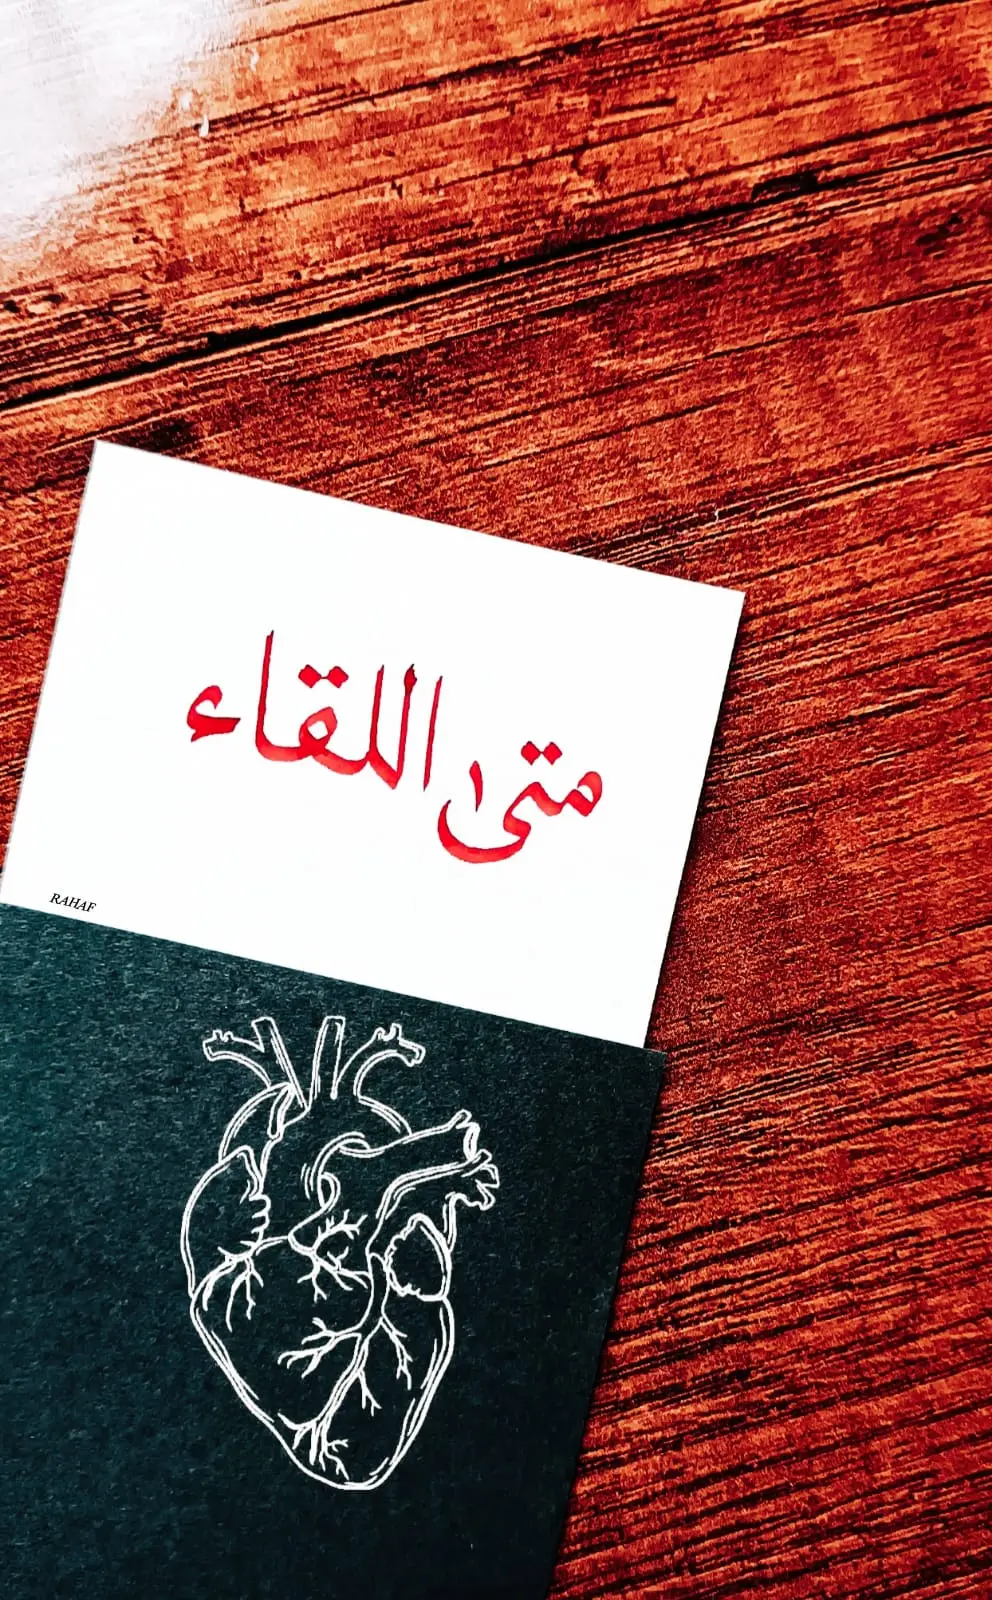 متى اللقاء
RAHAF